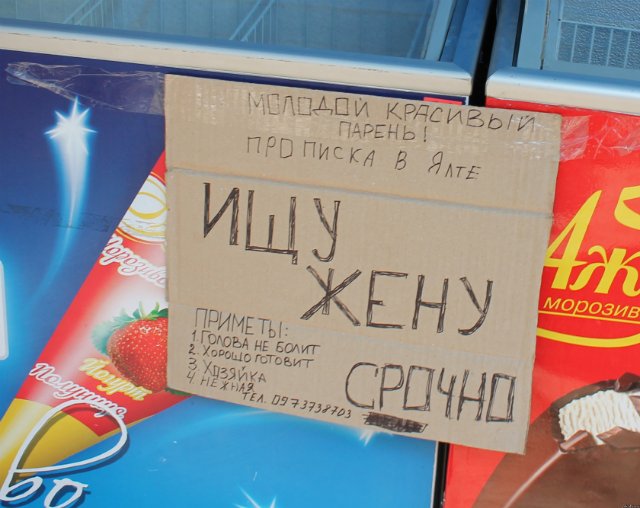 МОЛОДОЙ КРАСИВЫЙ
ПАРЕНЬ!
ПРОПИСКА В ЯЛТЕ
ИЩУ
ЖЕНУ
ПРИМЕТЫ:
1. ГОЛОВА НЕ БОЛИТ
2. ХОРОШО ГОТОВИТ
3. ХОЗЯЙКА
4. НЕЖНАЯ
СРОЧНО
ТЕЛ. 0973738703
Морозиво
Полуниця
Йогурт
Аж
морозив